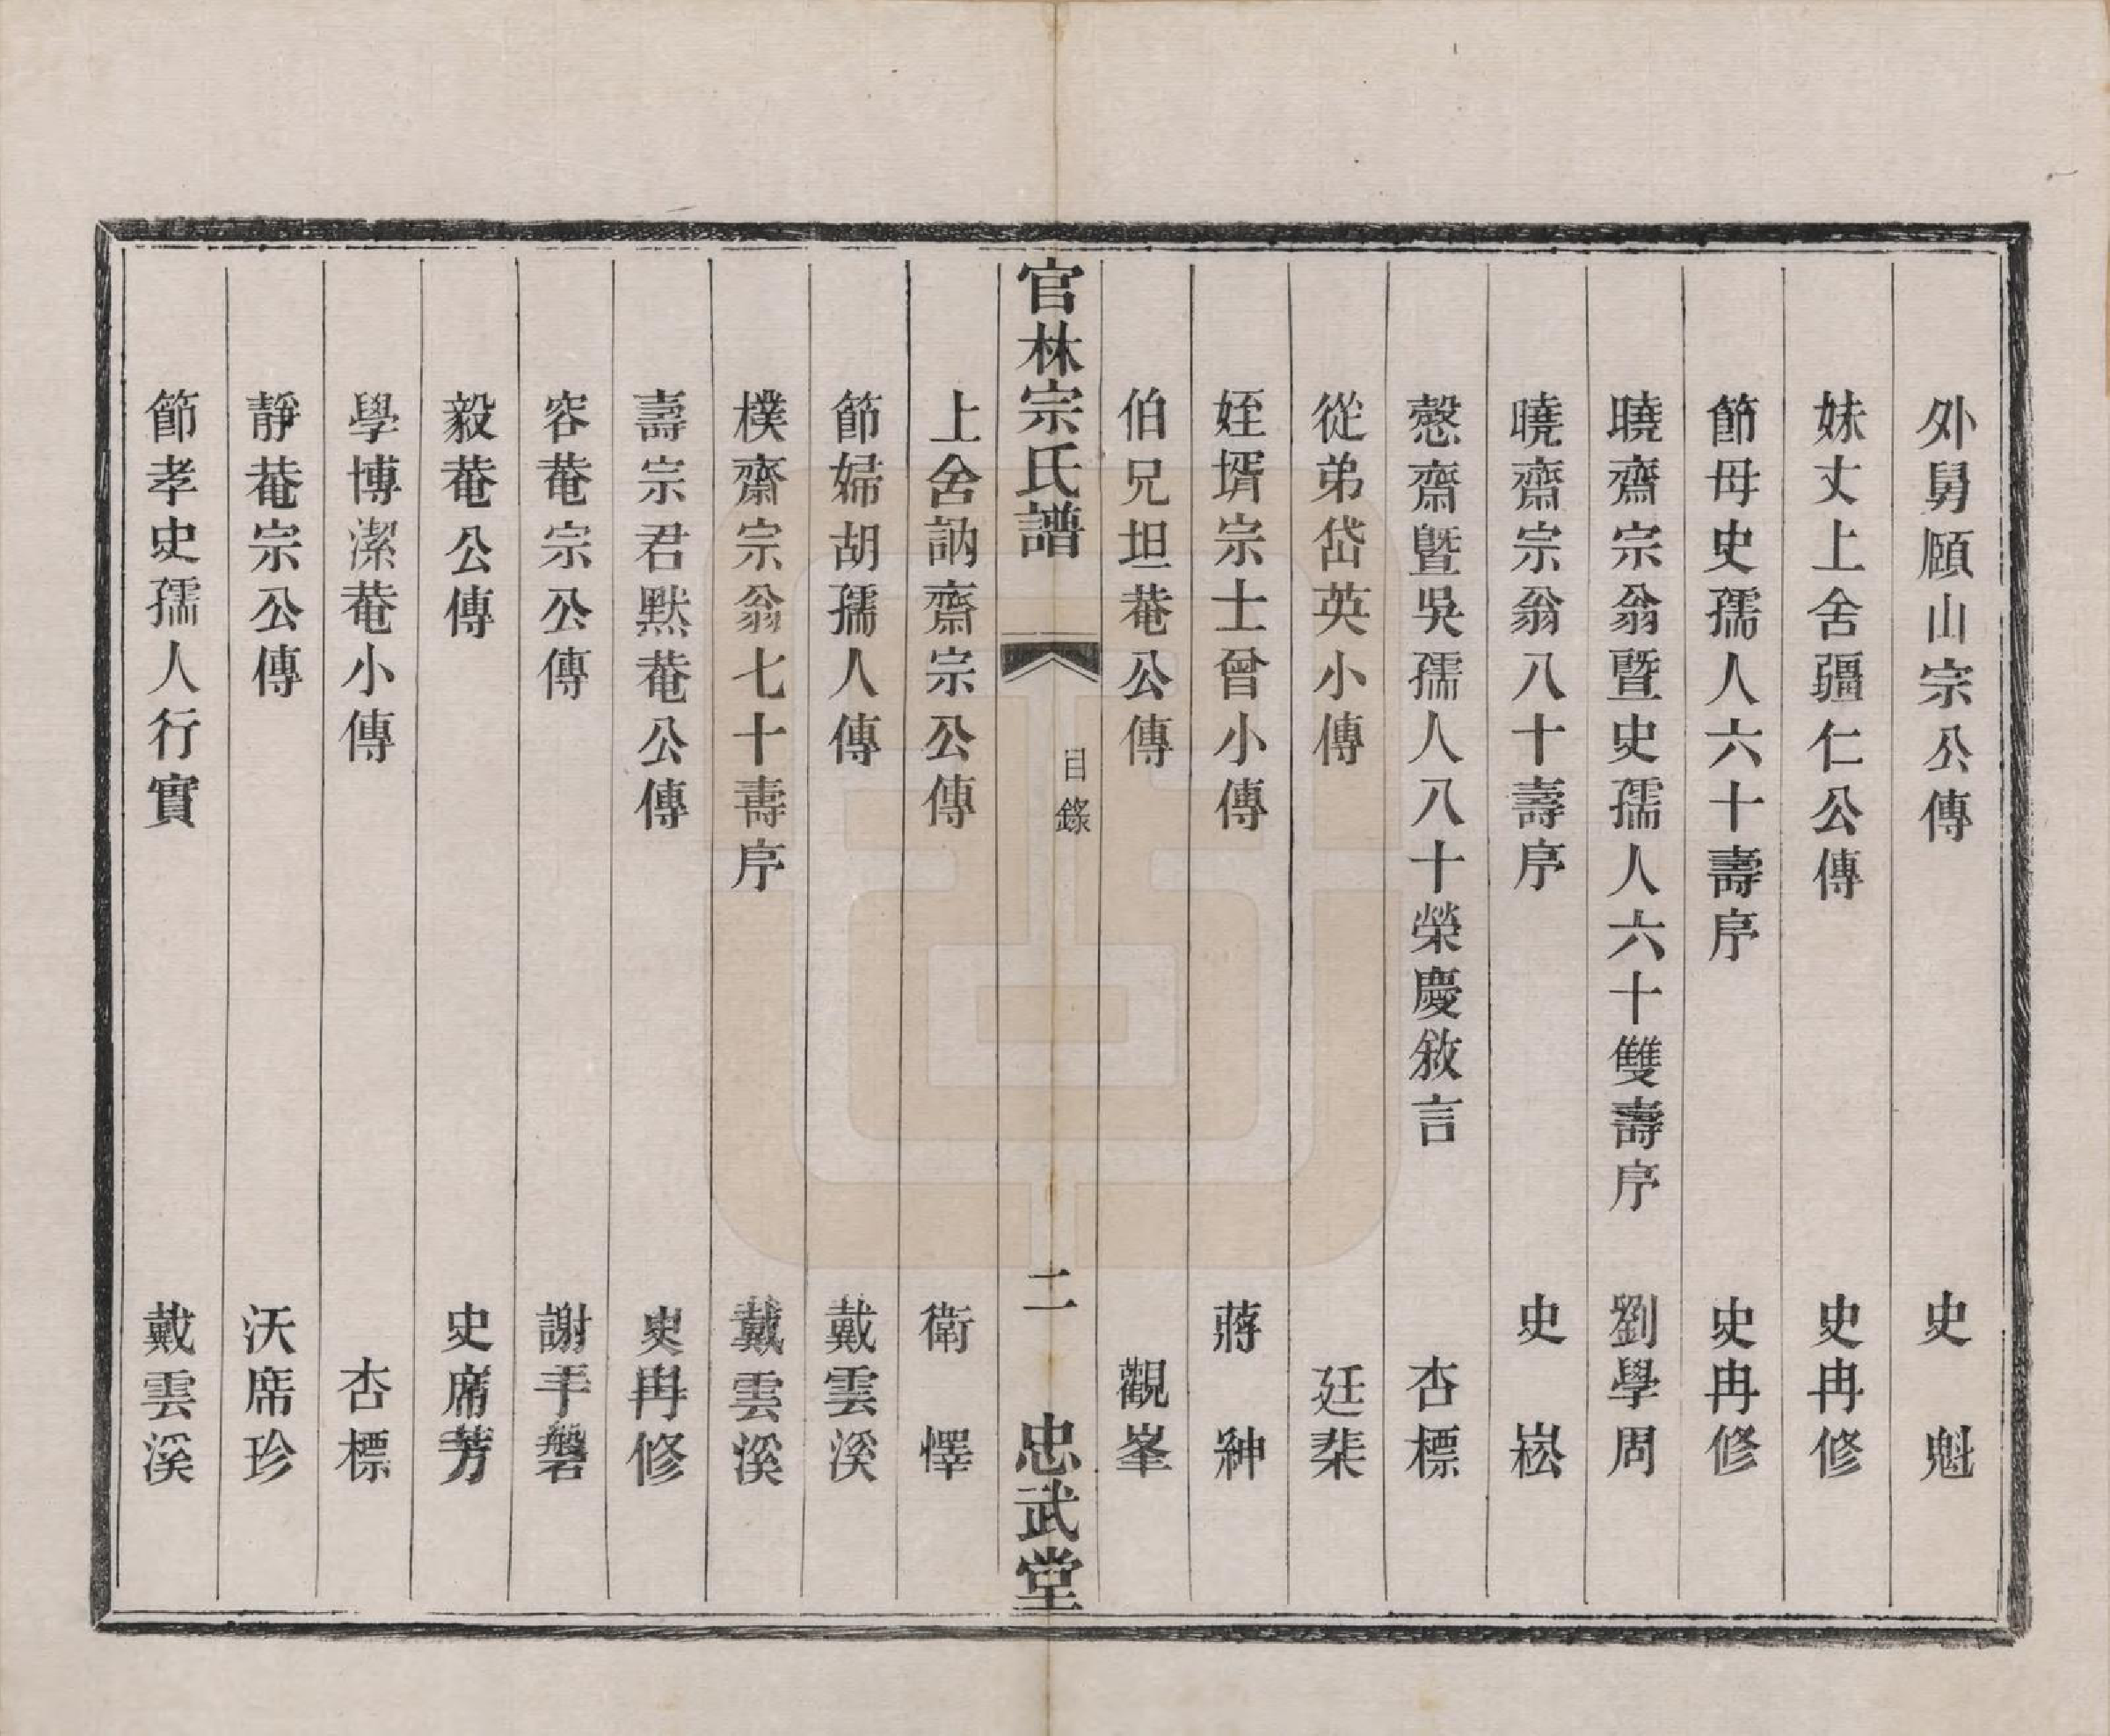 外舅頤山宗公傳 史魁
妹丈上舍疆仁公傳 史冉修
節母史孺人六十壽序 史冉修
曉齋宗翁暨史孺人六十雙壽序 劉學周
曉齋宗翁八十壽序 史崧
慤齋暨吳孺人八十榮慶敘言 杏標
從弟岱英小傳 廷棐
姪壻宗士曾小傳 蔣紳
伯兄坦菴公傳 觀峯
官林宗氏譜 目錄 二 忠武堂
上舍訥齋宗公傳 衛懌
節婦胡孺人傳 戴雲溪
樸齋宗翁七十壽序 戴雲溪
壽宗君默菴公傳 史冉修
容菴宗公傳 謝玉磐
毅菴公傳 史席芳
學博潔菴小傳 杏標
靜菴宗公傳 沃席珍
節孝史孺人行實 戴雲溪